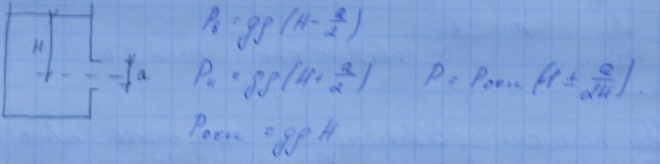 H
a
P_в = gρ(H - a/2)
P_н = gρ(H + a/2)
P = P_осн (1 ± a/2H).
P_осн = gρH